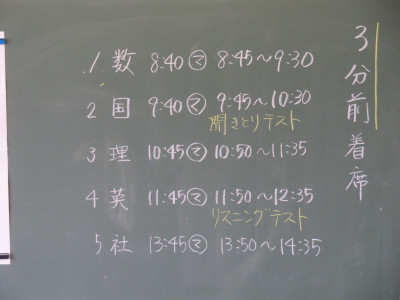 3分前着席
1 数 8:40㋮ 8:45〜9:30
2 国 9:40㋮ 9:45〜10:30
聞きとりテスト
3 理 10:45㋮ 10:50〜11:35
4 英 11:45㋮ 11:50〜12:35
リスニングテスト
5 社 13:45㋮ 13:50〜14:35